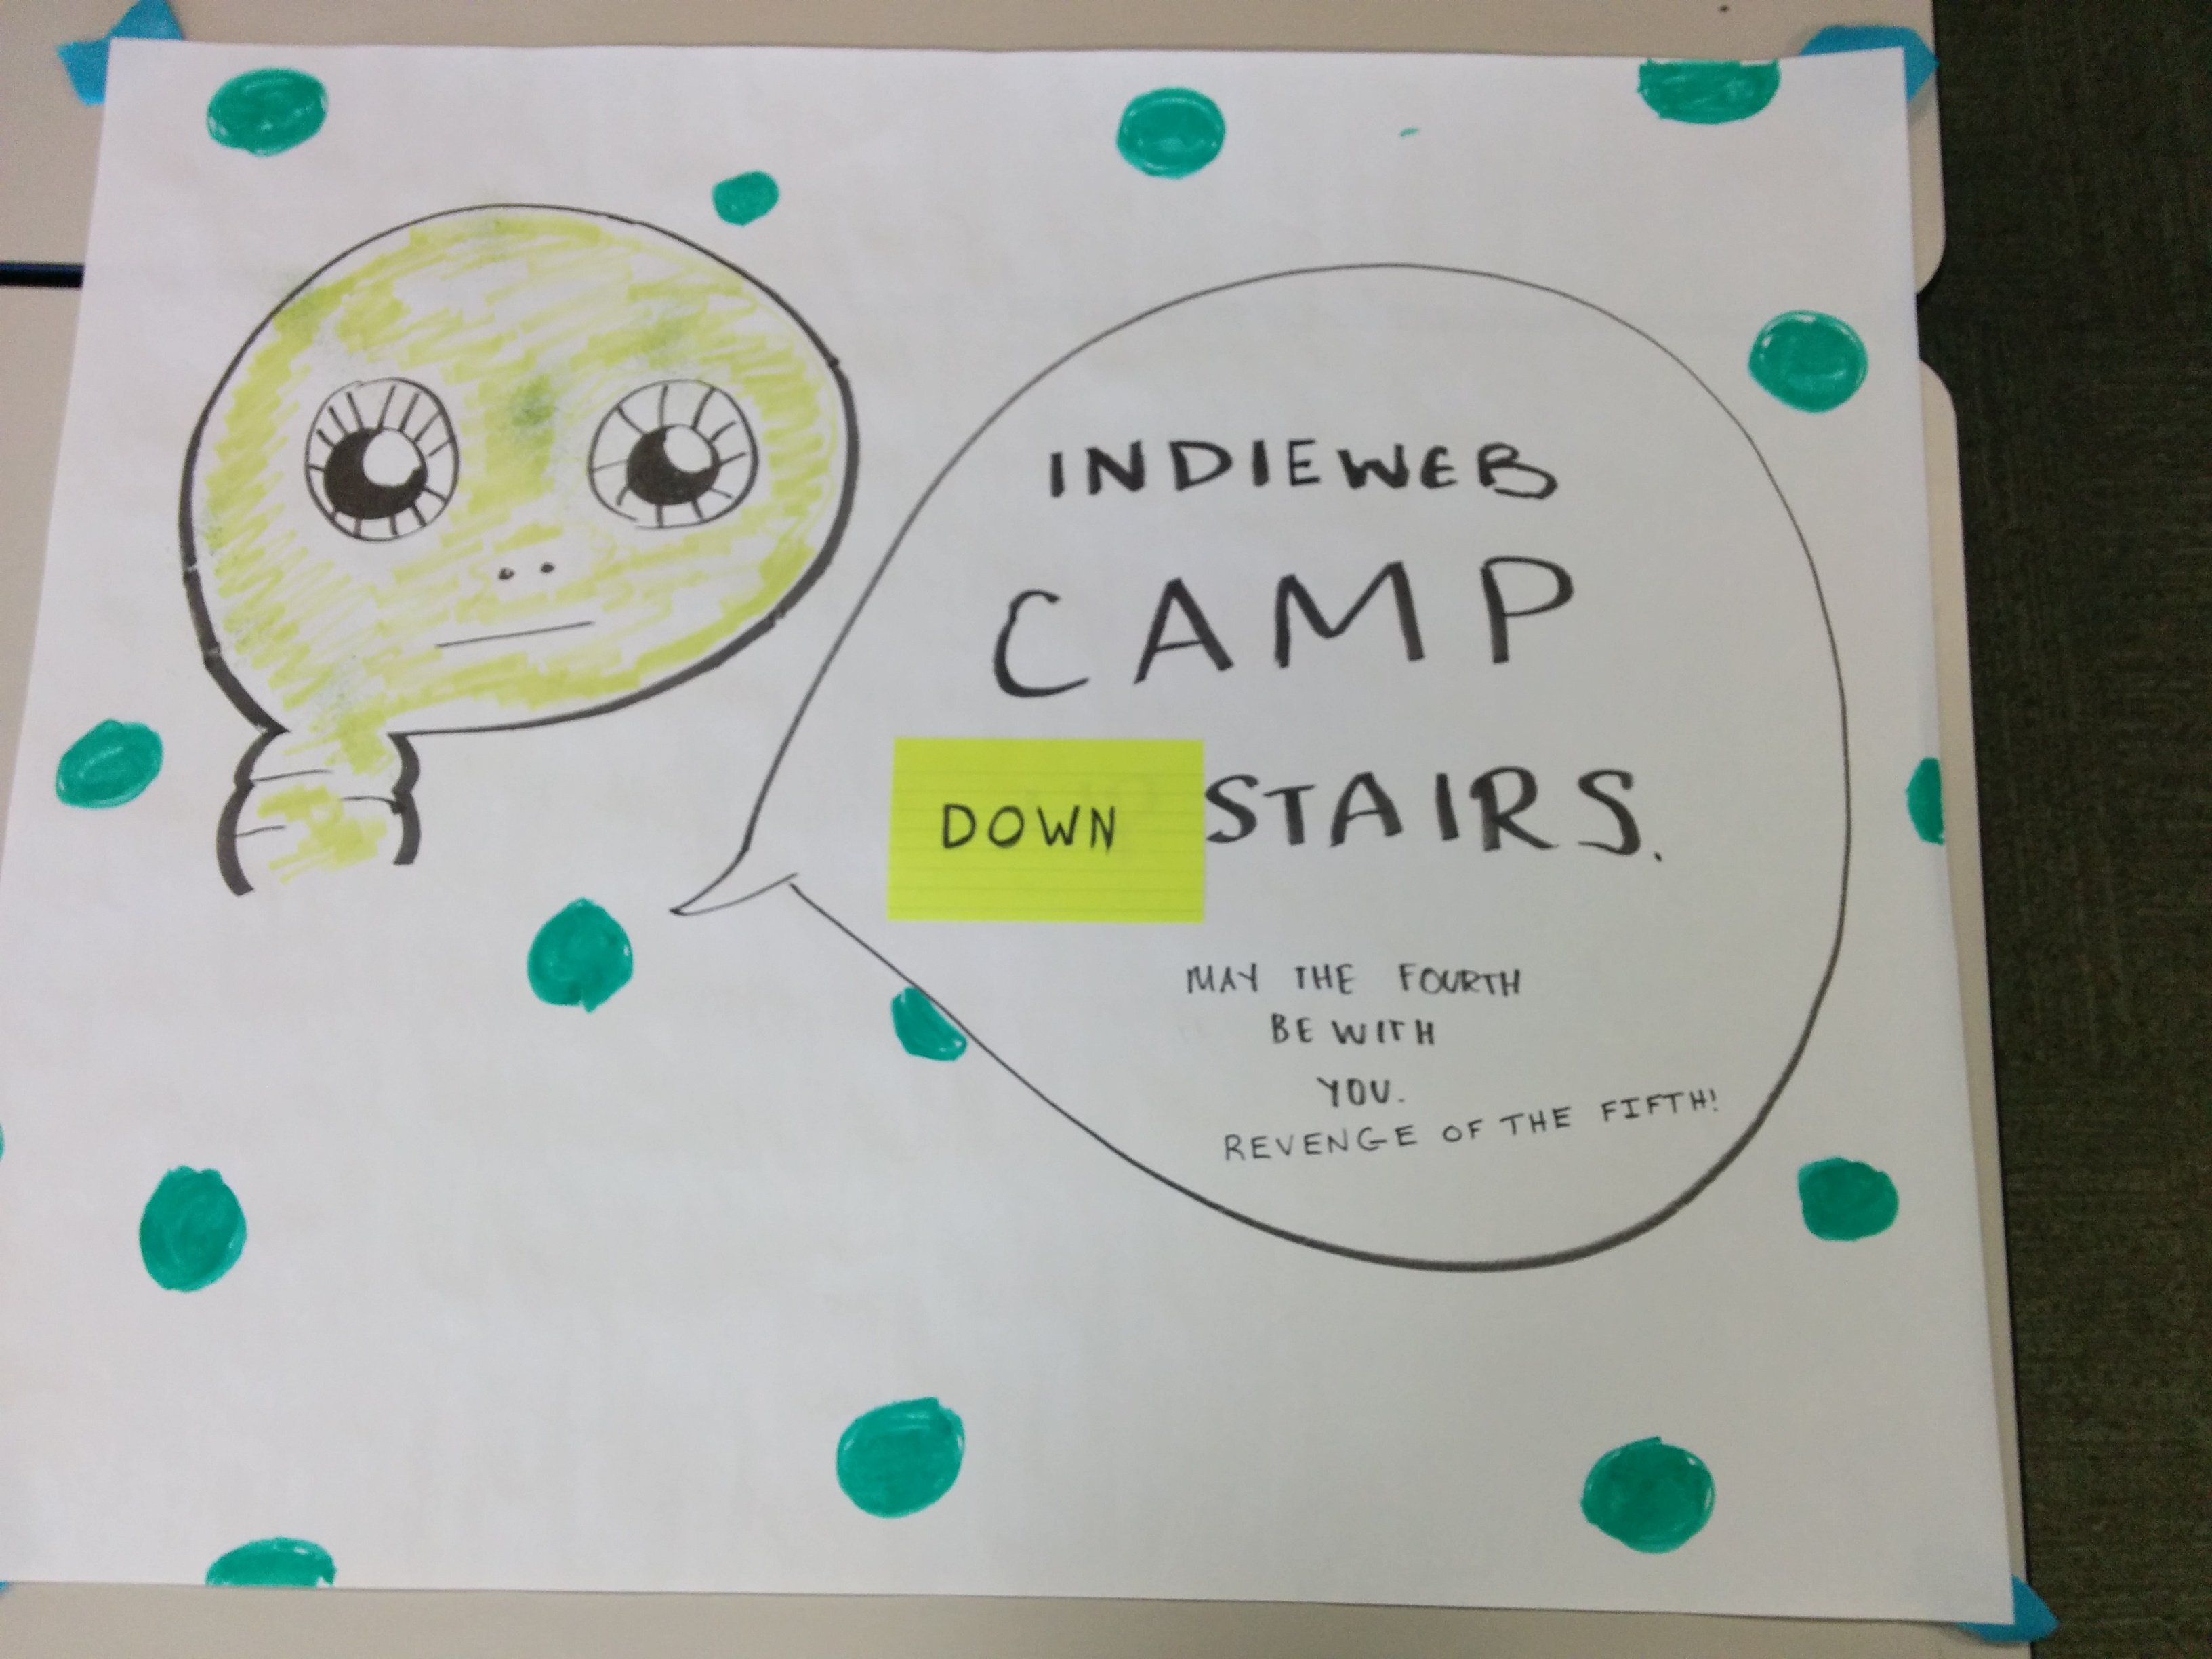 INDIEWEB
CAMP
DOWN STAIRS.
MAY THE FOURTH
BE WITH
YOU.
REVENGE OF THE FIFTH!